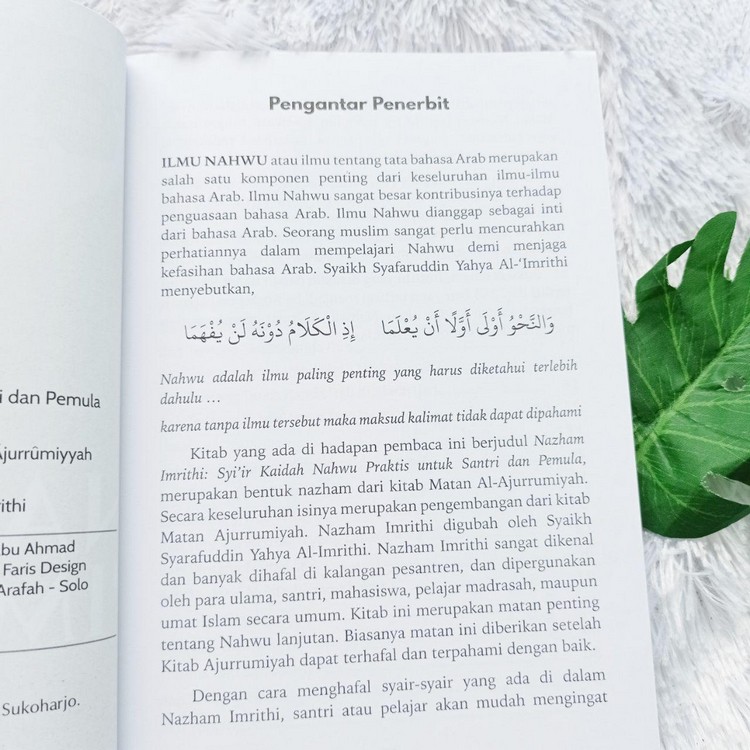 i dan Pemula
Ajurrûmiyyah
rithi
bu Ahmad
Faris Design
Arafah - Solo
Sukoharjo.
Pengantar Penerbit
ILMU NAHWU atau ilmu tentang tata bahasa Arab merupakan
salah satu komponen penting dari keseluruhan ilmu-ilmu
bahasa Arab. Ilmu Nahwu sangat besar kontribusinya terhadap
penguasaan bahasa Arab. Ilmu Nahwu dianggap sebagai inti
dari bahasa Arab. Seorang muslim sangat perlu mencurahkan
perhatiannya dalam mempelajari Nahwu demi menjaga
kefasihan bahasa Arab. Syaikh Syafaruddin Yahya Al-‘Imrithi
menyebutkan,
وَالنَّحْوُ أَوْلَى أَوَّلًا أَنْ يُعْلَمَا إِذِ الْكَلَامُ دُوْنَهُ لَنْ يُفْهَمَا
Nahwu adalah ilmu paling penting yang harus diketahui terlebih
dahulu …
karena tanpa ilmu tersebut maka maksud kalimat tidak dapat dipahami
Kitab yang ada di hadapan pembaca ini berjudul Nazham
Imrithi: Syi’ir Kaidah Nahwu Praktis untuk Santri dan Pemula,
merupakan bentuk nazham dari kitab Matan Al-Ajurrumiyah.
Secara keseluruhan isinya merupakan pengembangan dari kitab
Matan Ajurrumiyah. Nazham Imrithi digubah oleh Syaikh
Syarafuddin Yahya Al-Imrithi. Nazham Imrithi sangat dikenal
dan banyak dihafal di kalangan pesantren, dan dipergunakan
oleh para ulama, santri, mahasiswa, pelajar madrasah, maupun
umat Islam secara umum. Kitab ini merupakan matan penting
tentang Nahwu lanjutan. Biasanya matan ini diberikan setelah
Kitab Ajurrumiyah dapat terhafal dan terpahami dengan baik.
Dengan cara menghafal syair-syair yang ada di dalam
Nazham Imrithi, santri atau pelajar akan mudah mengingat